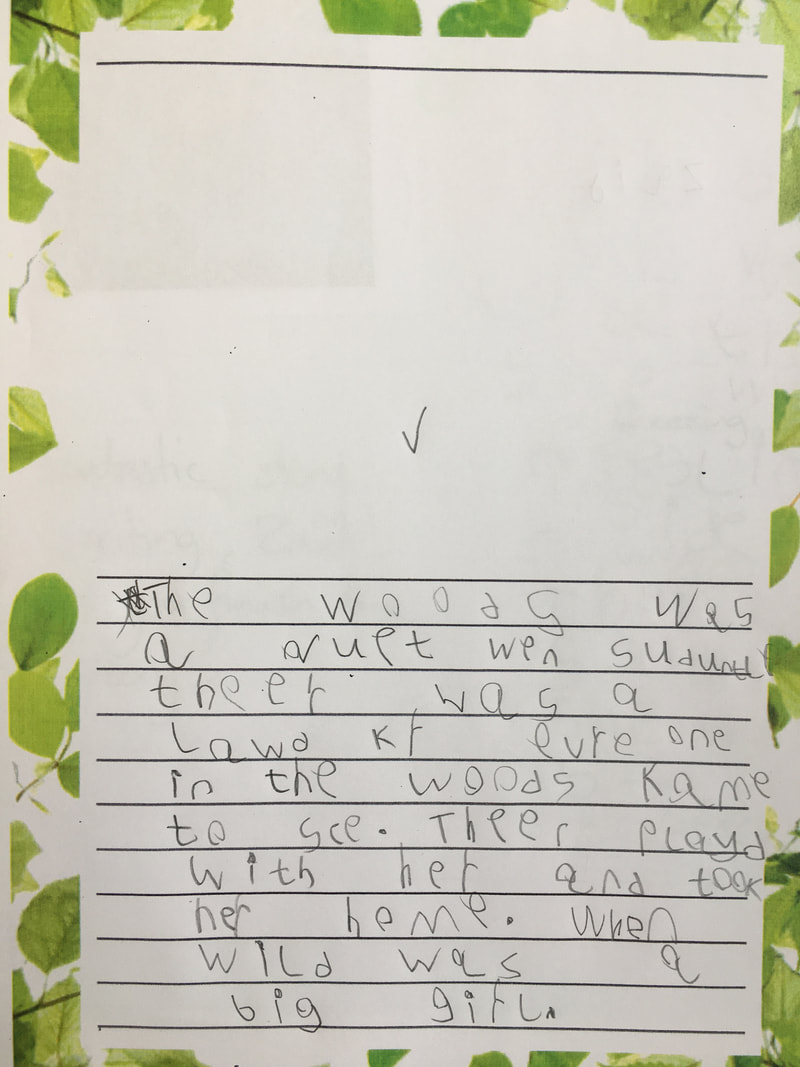 The woods was
a quet wen suduntl
theer was a
Lawd kr evre one
in the woods kame
to see. Theer playd
with her and took
her home. When
wild was a
big girl.